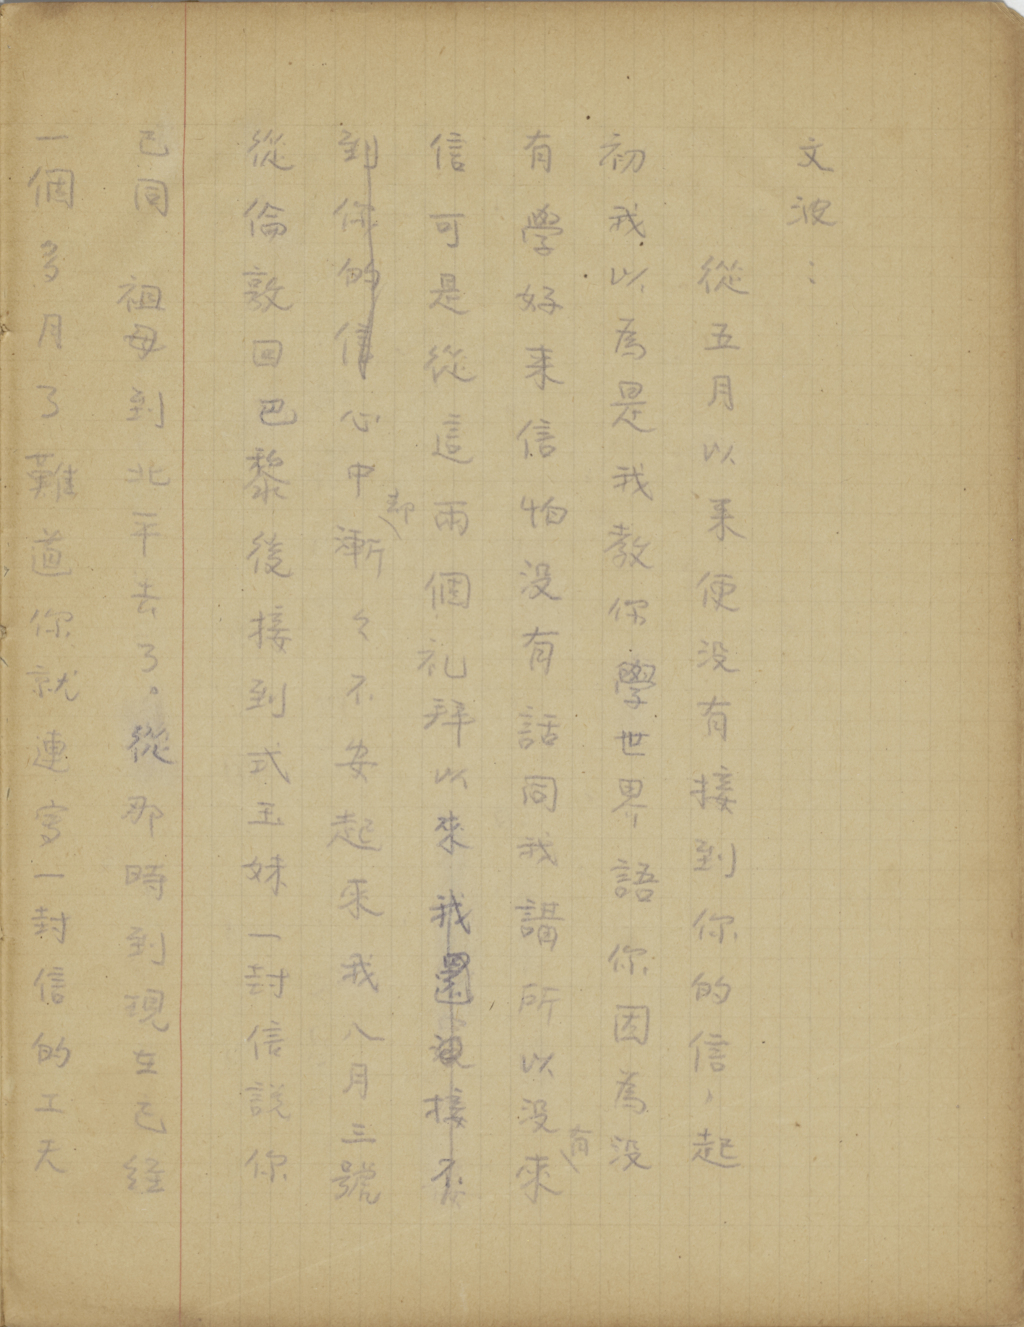 文波：
從五月以來便没有接到你的信，起
初我以為是我教你學世界語你因為没
有學好來信怕没有話同我講所以没有來
信可是從這兩個礼拜以來我還沒接不
到你的信心中却漸々不安起來我八月三號
從倫敦回巴黎後接到式玉妹一封信說你
已同 祖母到北平去了。從那時到現在已経
一個多月了難道你就連寫一封信的工夫